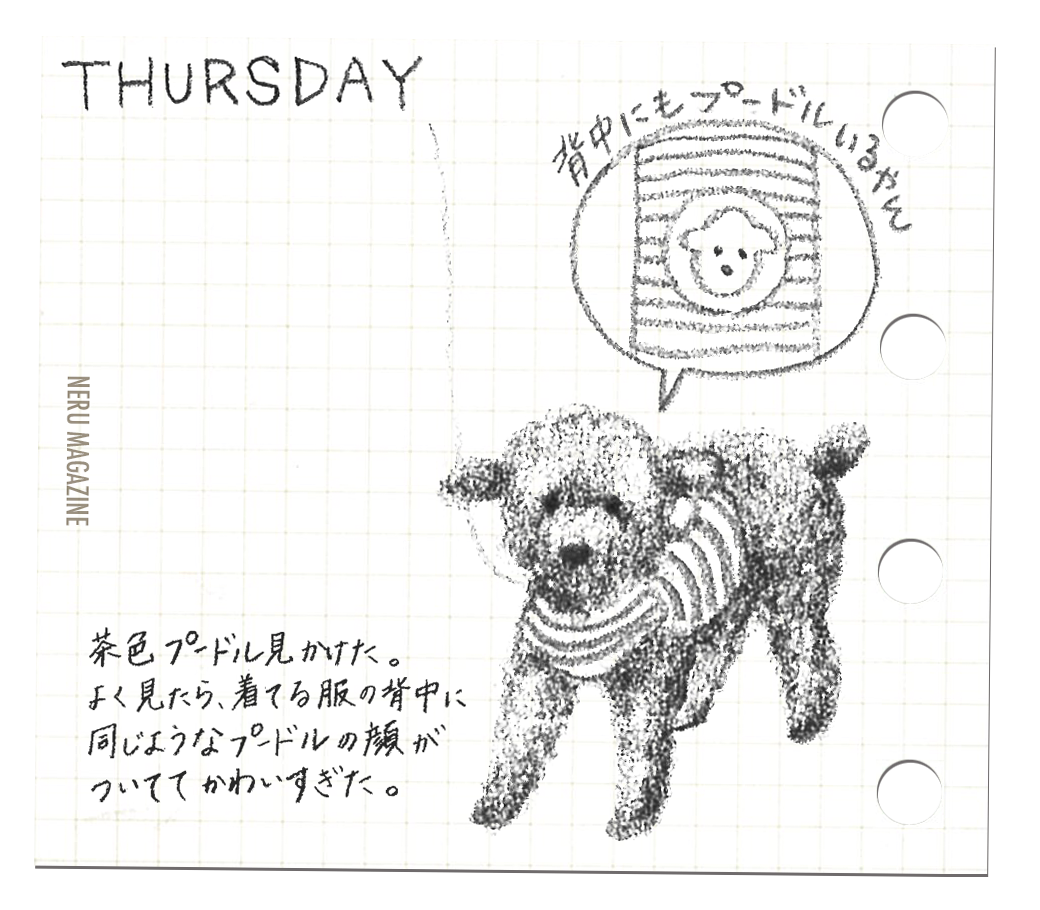 THURSDAY
背中にもプードルいるやん
NERU MAGAZINE
茶色プードル見かけた。
よく見たら、着てる服の背中に
同じようなプードルの顔が
ついててかわいすぎた。